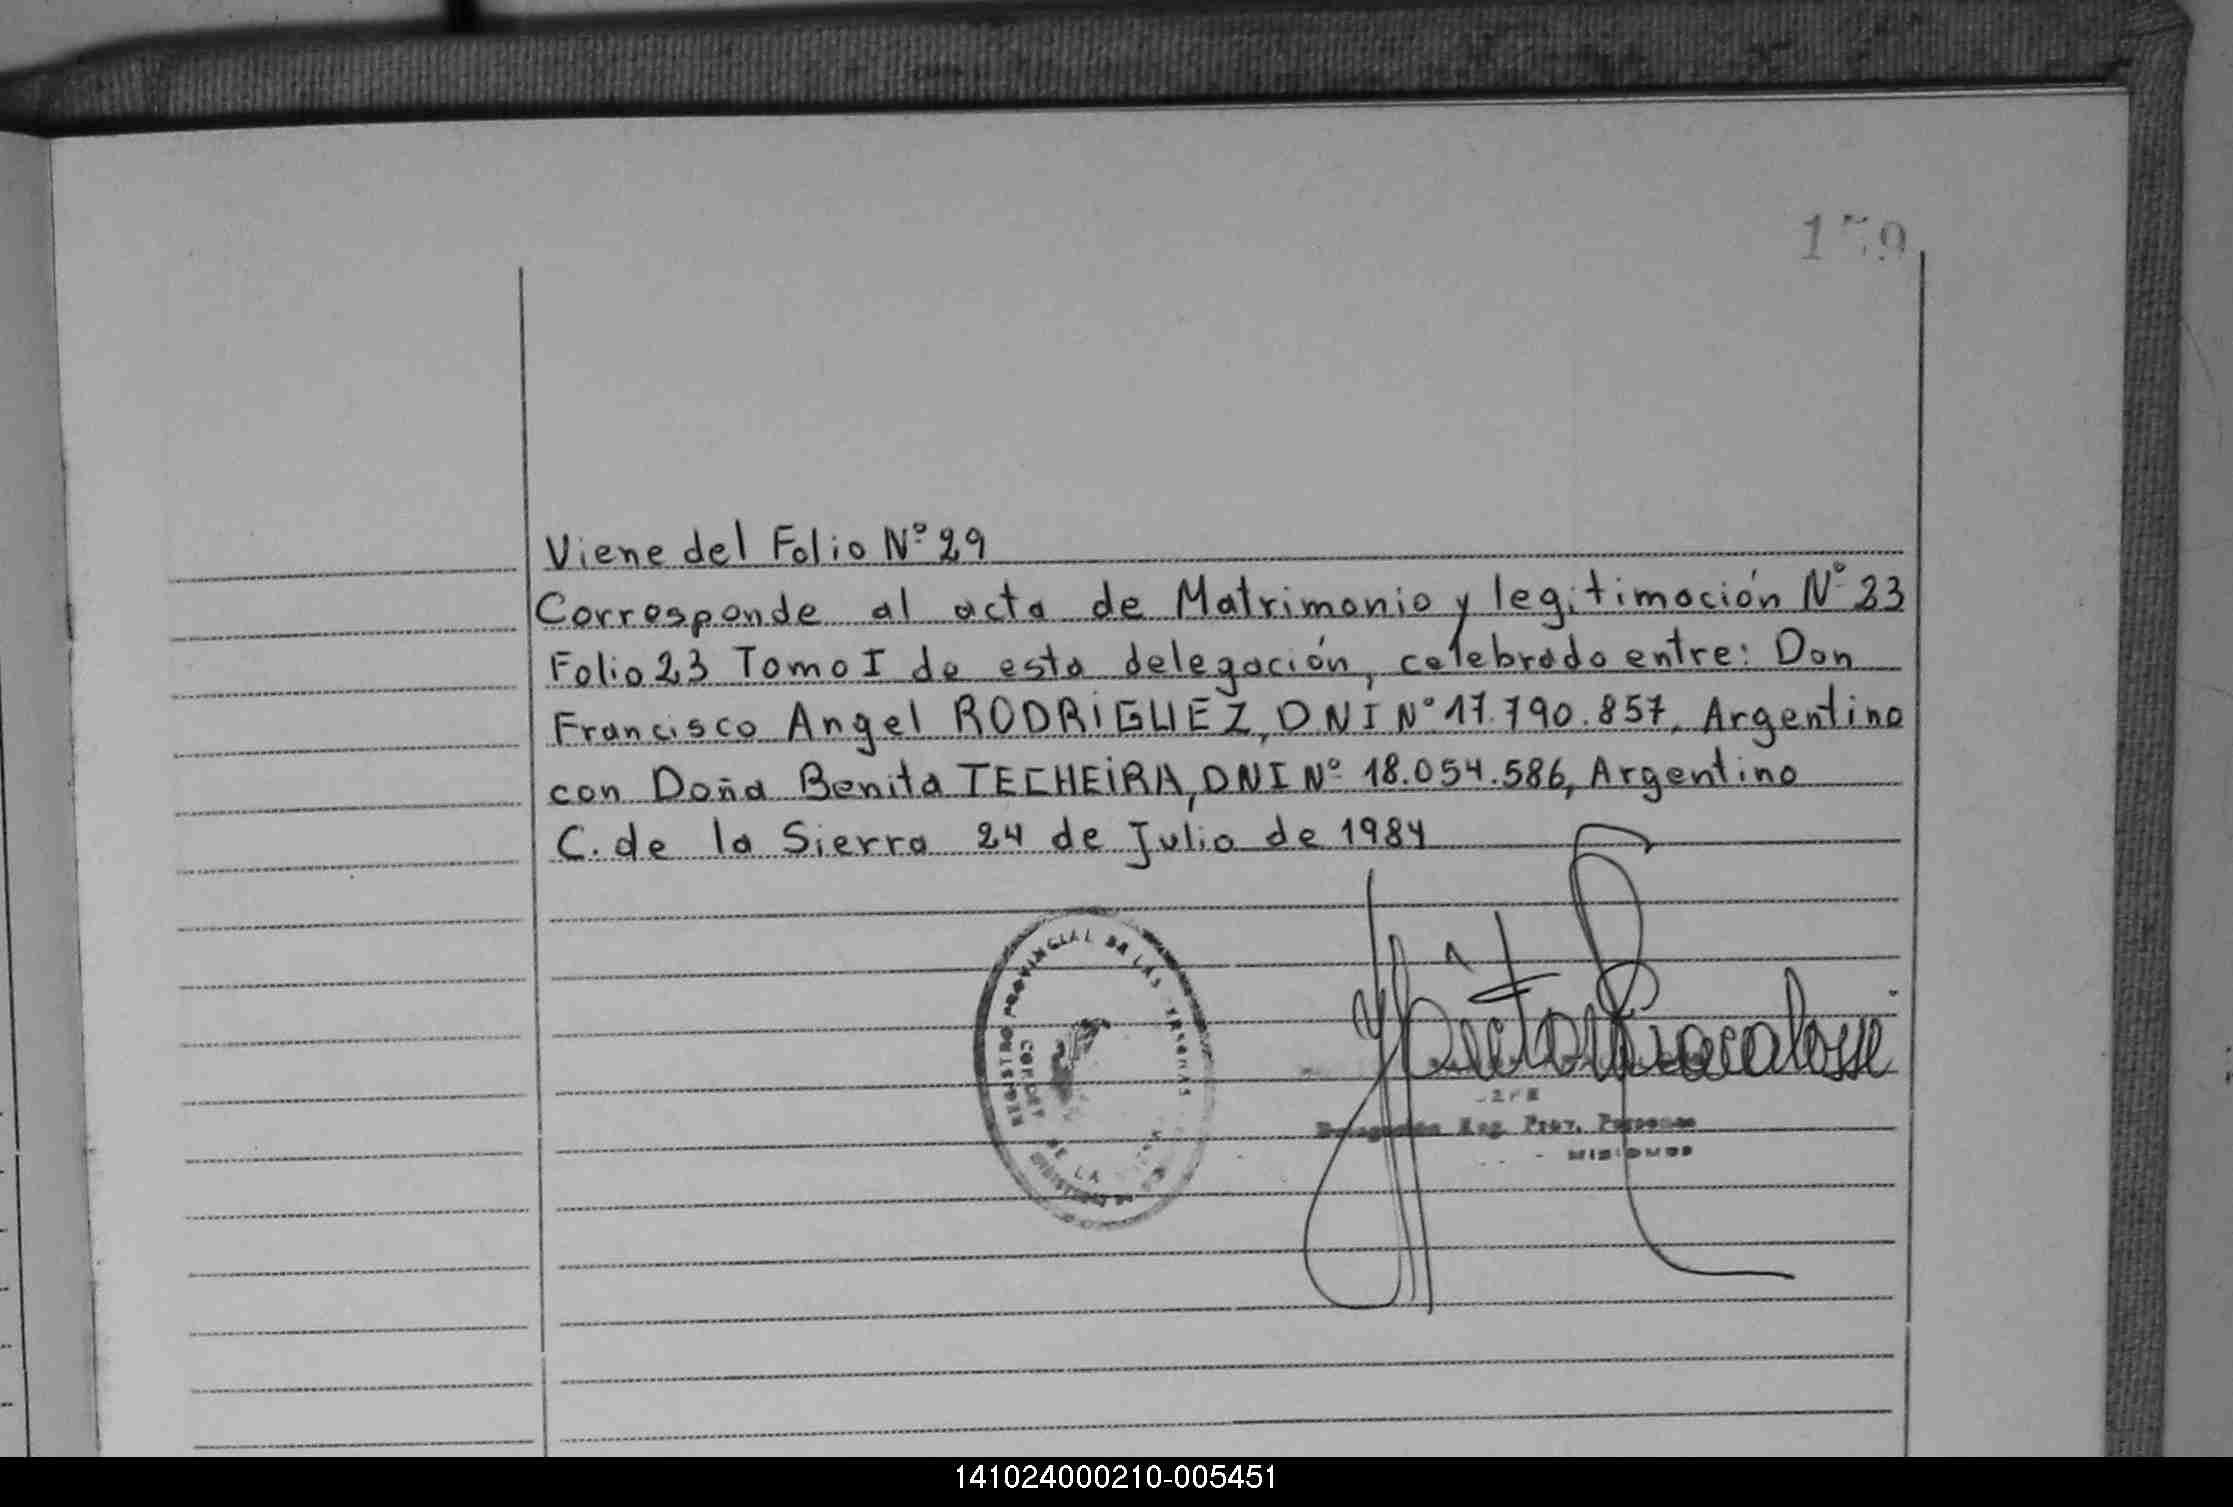 Viene del Folio Nº 29
Corresponde al acta de Matrimonio y legitimación Nº 23
Folio 23 Tomo I de esta delegación, celebrado entre: Don
Francisco Angel RODRIGUEZ, DNI Nº 17.790.857, Argentino
con Doña Benita TECHEIRA, DNI Nº 18.054.586, Argentino
C. de la Sierra 24 de Julio de 1984
REGISTRO PROVINCIAL DE LAS PERSONAS
DE LA
Delegación Reg. Prov. Personas
MISIONES
141024000210-005451